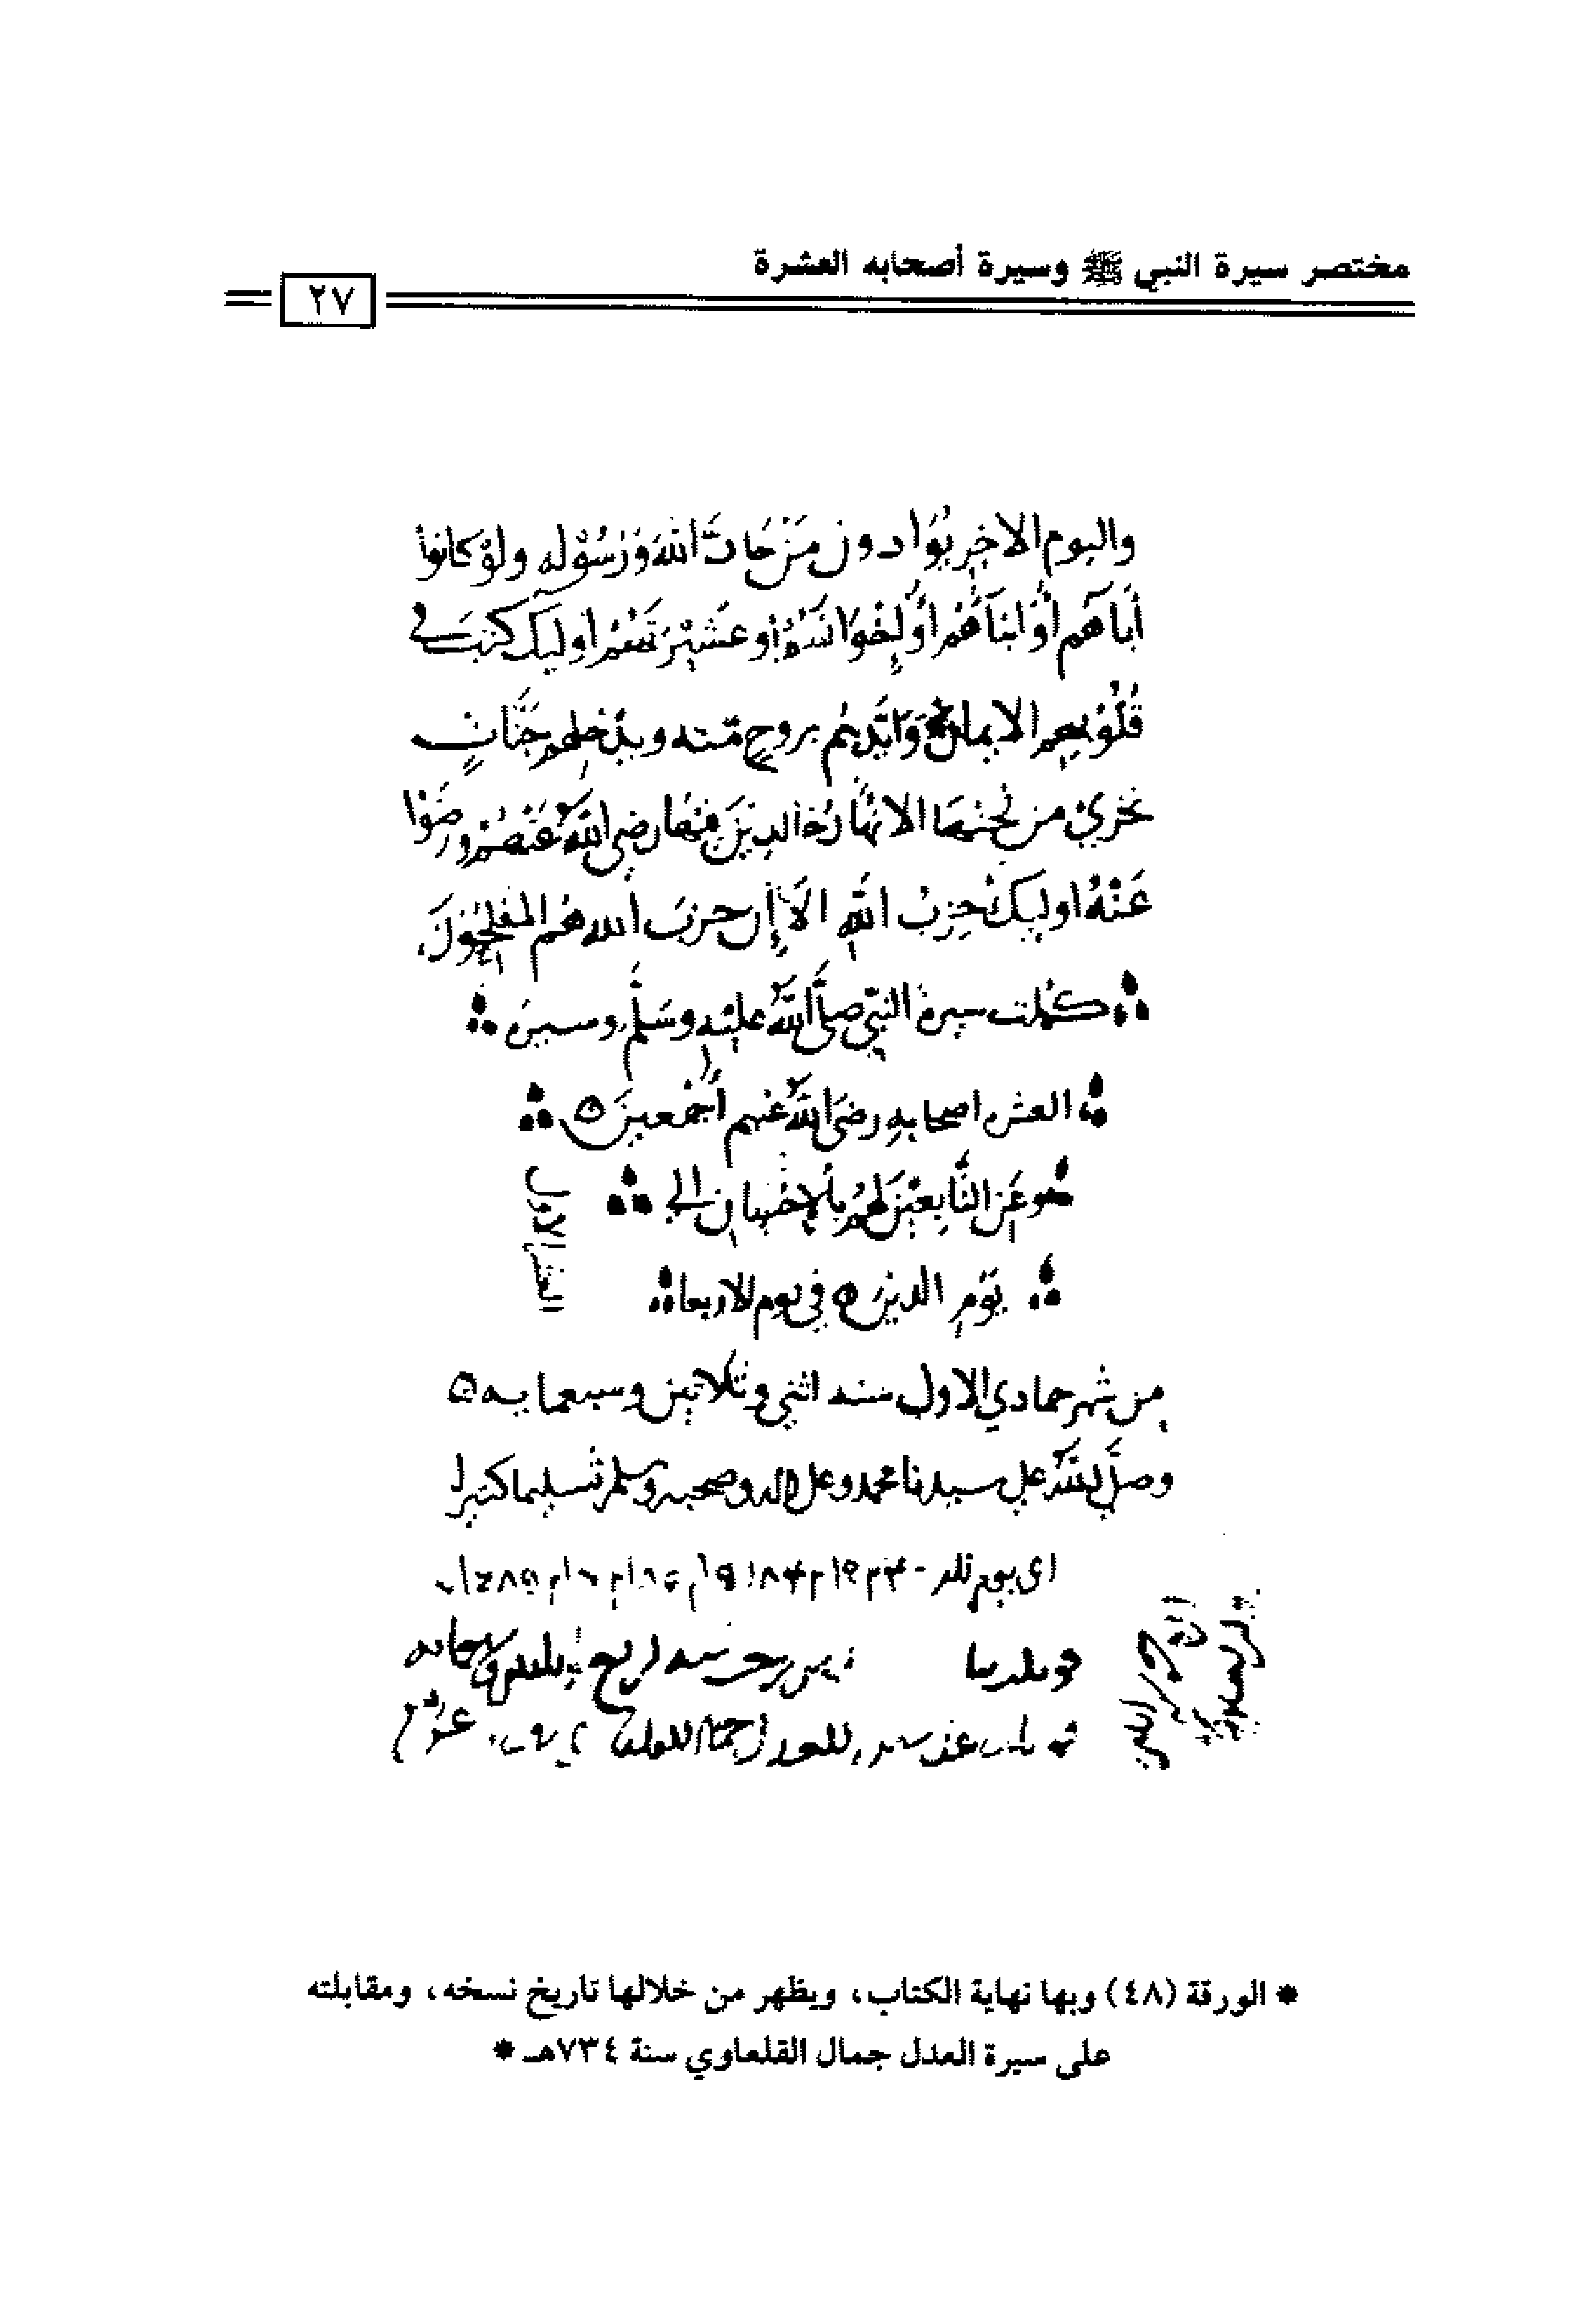 مختصر سيرة النبي ﷺ وسيرة أصحابه العشرة
٢٧
واليوم الاخِرِ يُوَادون مَنْ حَادَّ اللهَ وَرَسُوْله ولَوْ كانوا
أباهم أوْ ابنَاَهُمْ أوْ إخْوَانَهُمْ أو عَشِيْرَتَهُمْ اوليِكَ كتبَ في
قُلُوْبِهِم الايمان وَايَّدهُم بروحٍ مّنه ويدْخِلهم جَنَّاتٍ
تجْري من تحتِهَا الانهَارُ خالدِيْنَ فِيْهَا رضِي اللَّهُ عَنْهُمْ ورضُوْا
عَنْهُ اوليِكَ حِزبُ اللَّهِ الاَ إِن حزبَ الله هُم المفلِحُوْنَ
كمُلت سيرة النبيّ صلَّى اللَّهُ عليْهِ وسَلَّم وسيرة
العشرة اصحابهِ رضيَ اللَّهُ عنهم أجْمعينَ ه
وعَنِ التَّابِعيْنَ لَهُمْ بالإحْسان الى
يَوْمِ الدينِ ه في يوم الاربعا
العشر الاول
من شهر جمادي الاول سنه اثني وثلاثين وسبعمايه ه
وصلَّى اللَّه علي سيدنا محمد وعلى اله وصحبه وسلم تسليما كثيرا
* الورقة (٤٨) وبها نهاية الكتاب، ويظهر من خلالها تاريخ نسخه، ومقابلته
على سيرة العدل جمال القلعاوي سنة ٧٣٤هـ *